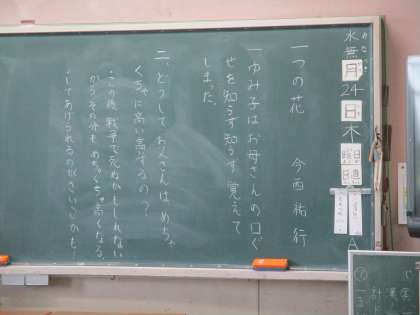 水無月24日木曜日
みなづき
一つの花　今西祐行
一、ゆみ子はお母さんの口ぐ
せを知らず知らず覚えて
しまった。
二、どうしてお父さんはめちゃ
くちゃに高い高いするの?
この後、戦争で死ぬかもしれない
からその分も、めちゃくちゃ高くなる。
してあげられるの
A